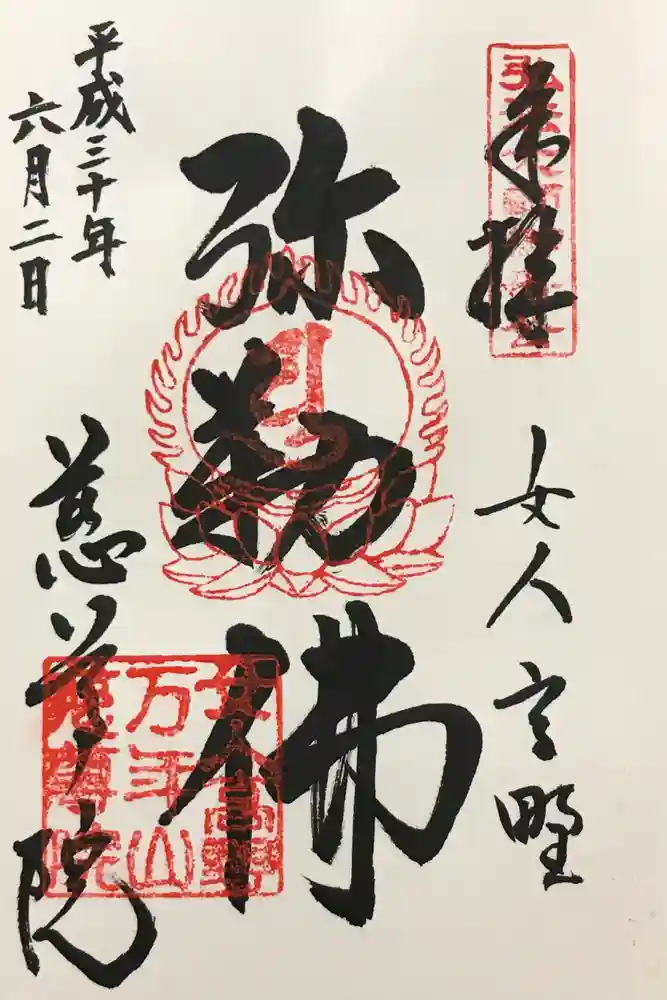 奉拝
女人高野
弥勒佛
平成三十年
六月二日
慈尊院
女人高野
万年山
慈尊院